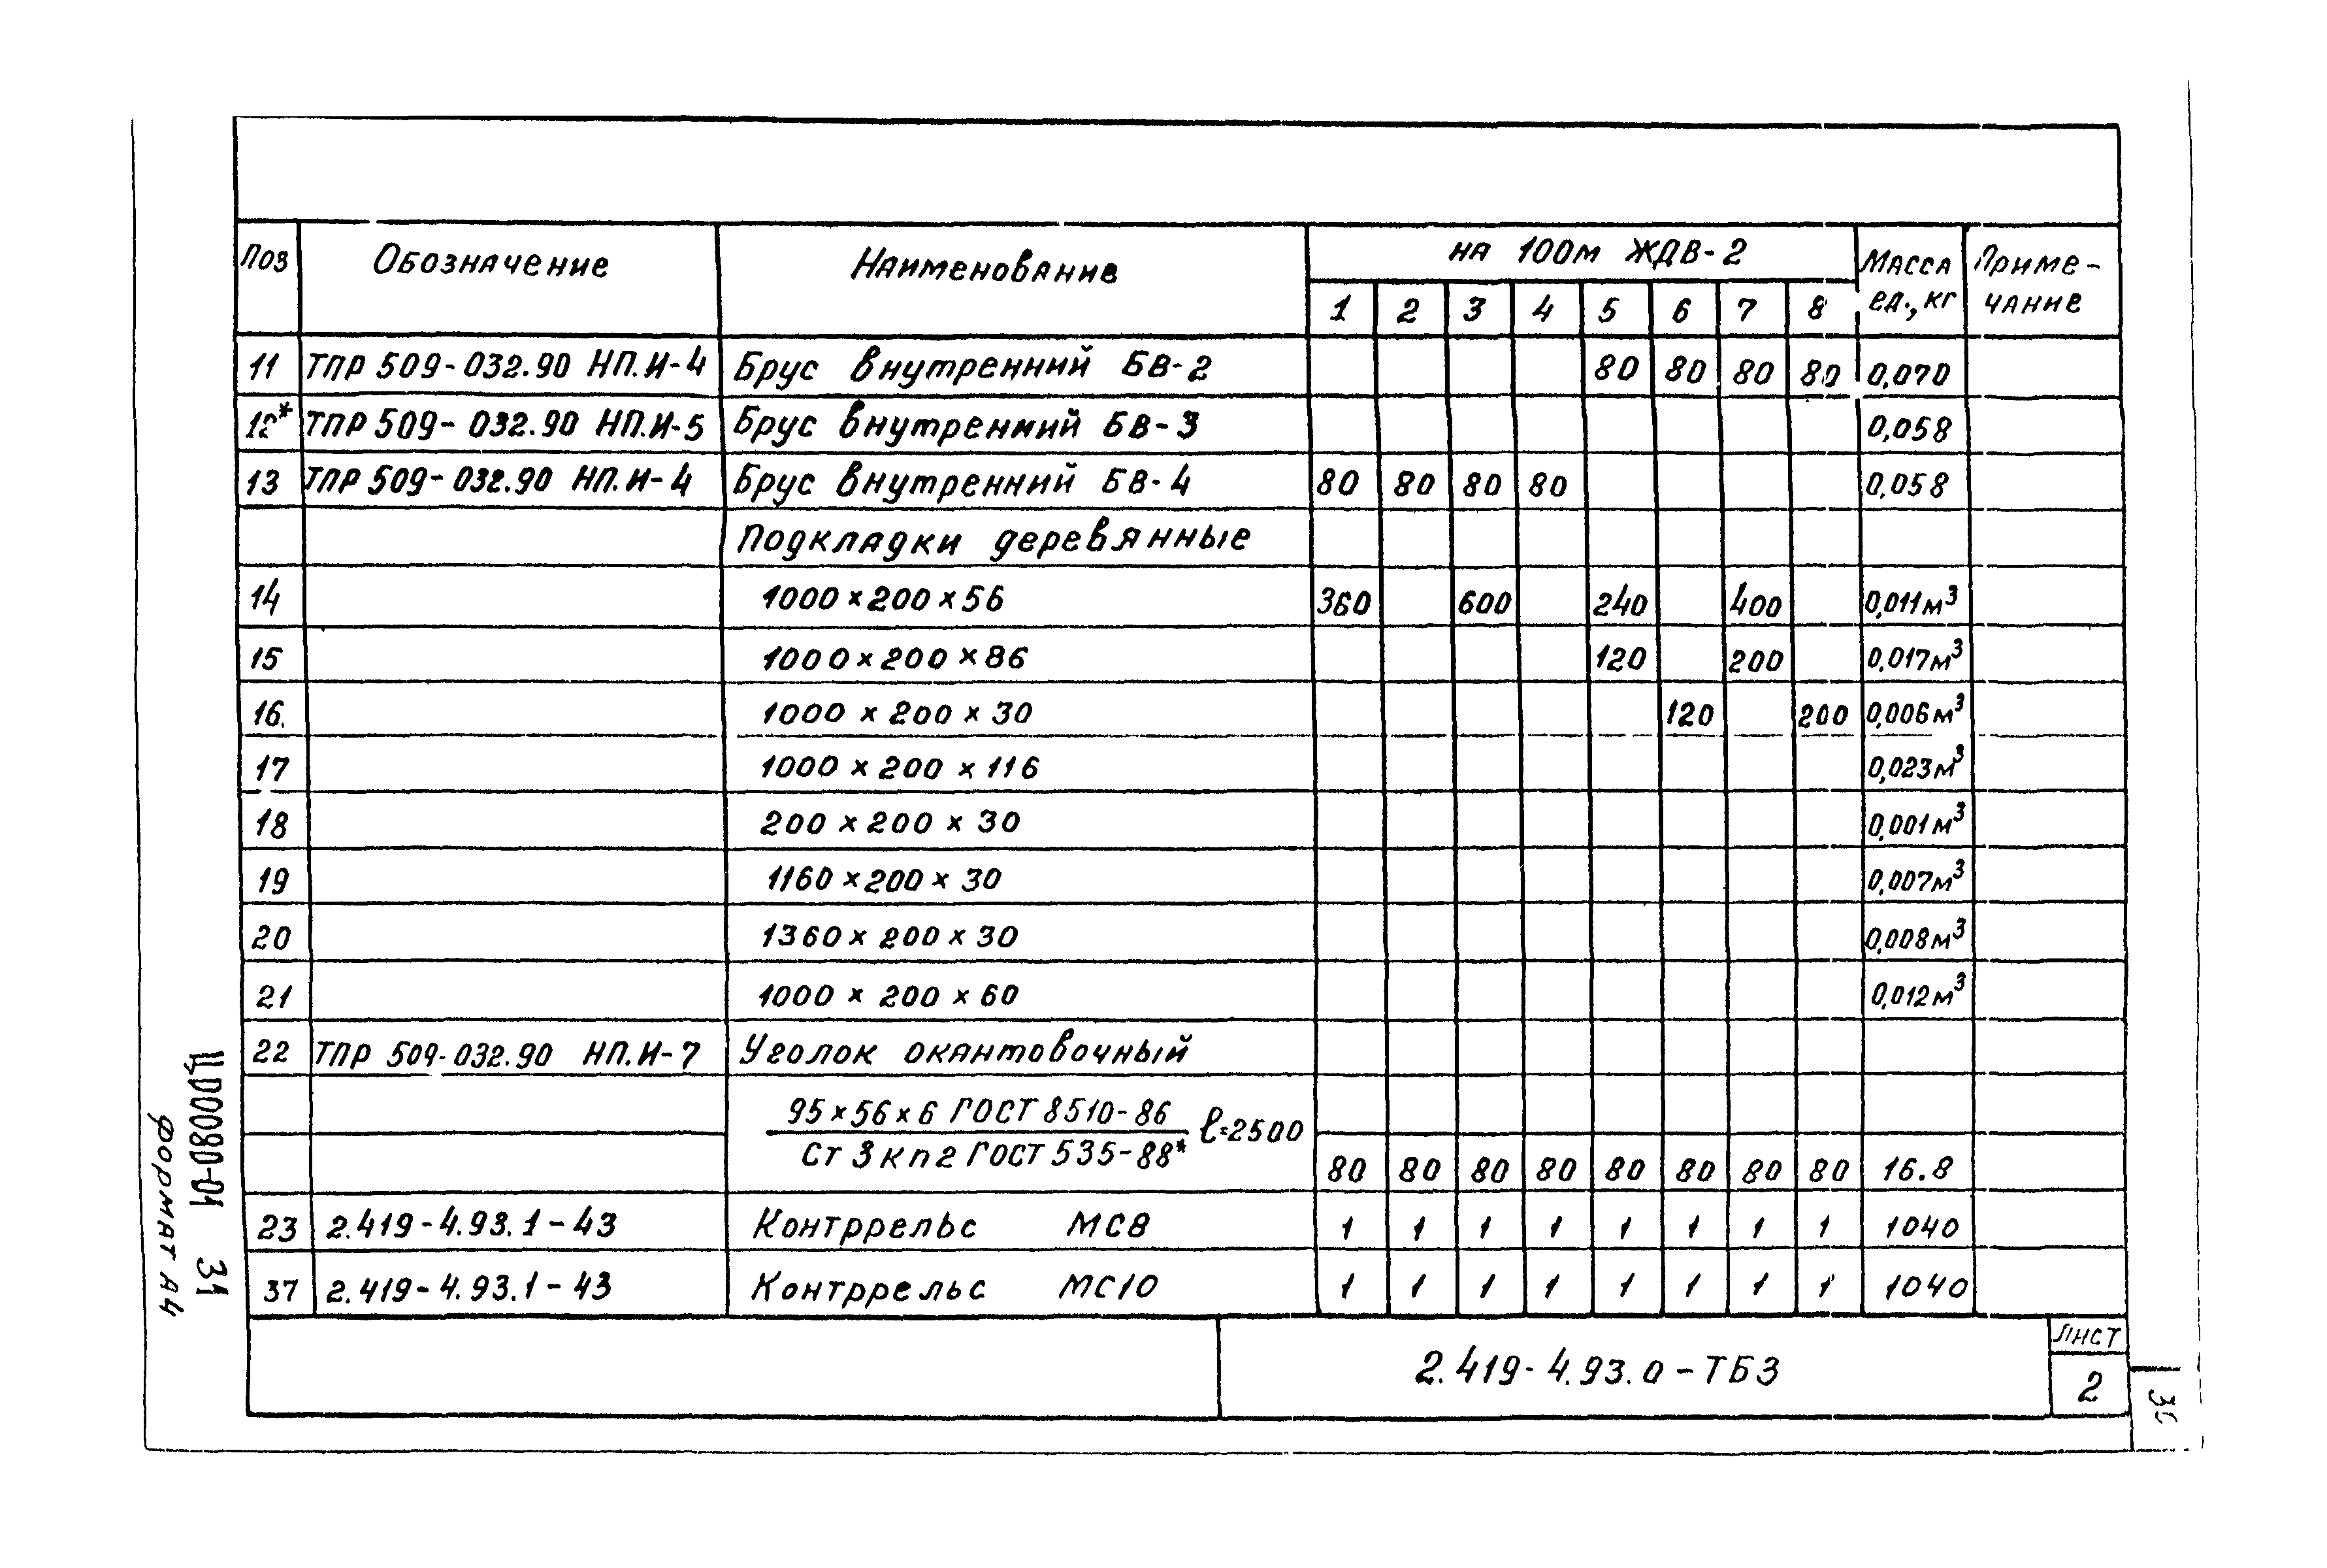 Поз Обозначение Наименование на 100м ЖДВ-2 Масса ед., кг Приме-чание
1 2 3 4 5 6 7 8
11 ТПР 509-032.90 НП.И-4 Брус внутренний БВ-2 80 80 80 80 0,070
12* ТПР 509-032.90 НП.И-5 Брус внутренний БВ-3 0,058
13 ТПР 509-032.90 НП.И-4 Брус внутренний БВ-4 80 80 80 80 0,058
Подкладки деревянные
14 1000×200×56 360 600 240 400 0,011м³
15 1000×200×86 120 200 0,017м³
16. 1000×200×30 120 200 0,006м³
17 1000×200×116 0,023м³
18 200×200×30 0,001м³
19 1160×200×30 0,007м³
20 1360×200×30 0,008м³
21 1000×200×60 0,012м³
22 ТПР 509-032.90 НП.И-7 Уголок окантовочный
95×56×6 ГОСТ 8510-86
Ст 3кп2 ГОСТ 535-88* ℓ=2500 80 80 80 80 80 80 80 80 16.8
23 2.419-4.93.1-43 Контррельс МС8 1 1 1 1 1 1 1 1 1040
37 2.419-4.93.1-43 Контррельс МС10 1 1 1 1 1 1 1 1 1040
2.419-4.93.0-ТБ3
Лист
2
Ц00080-01 31
формат А4